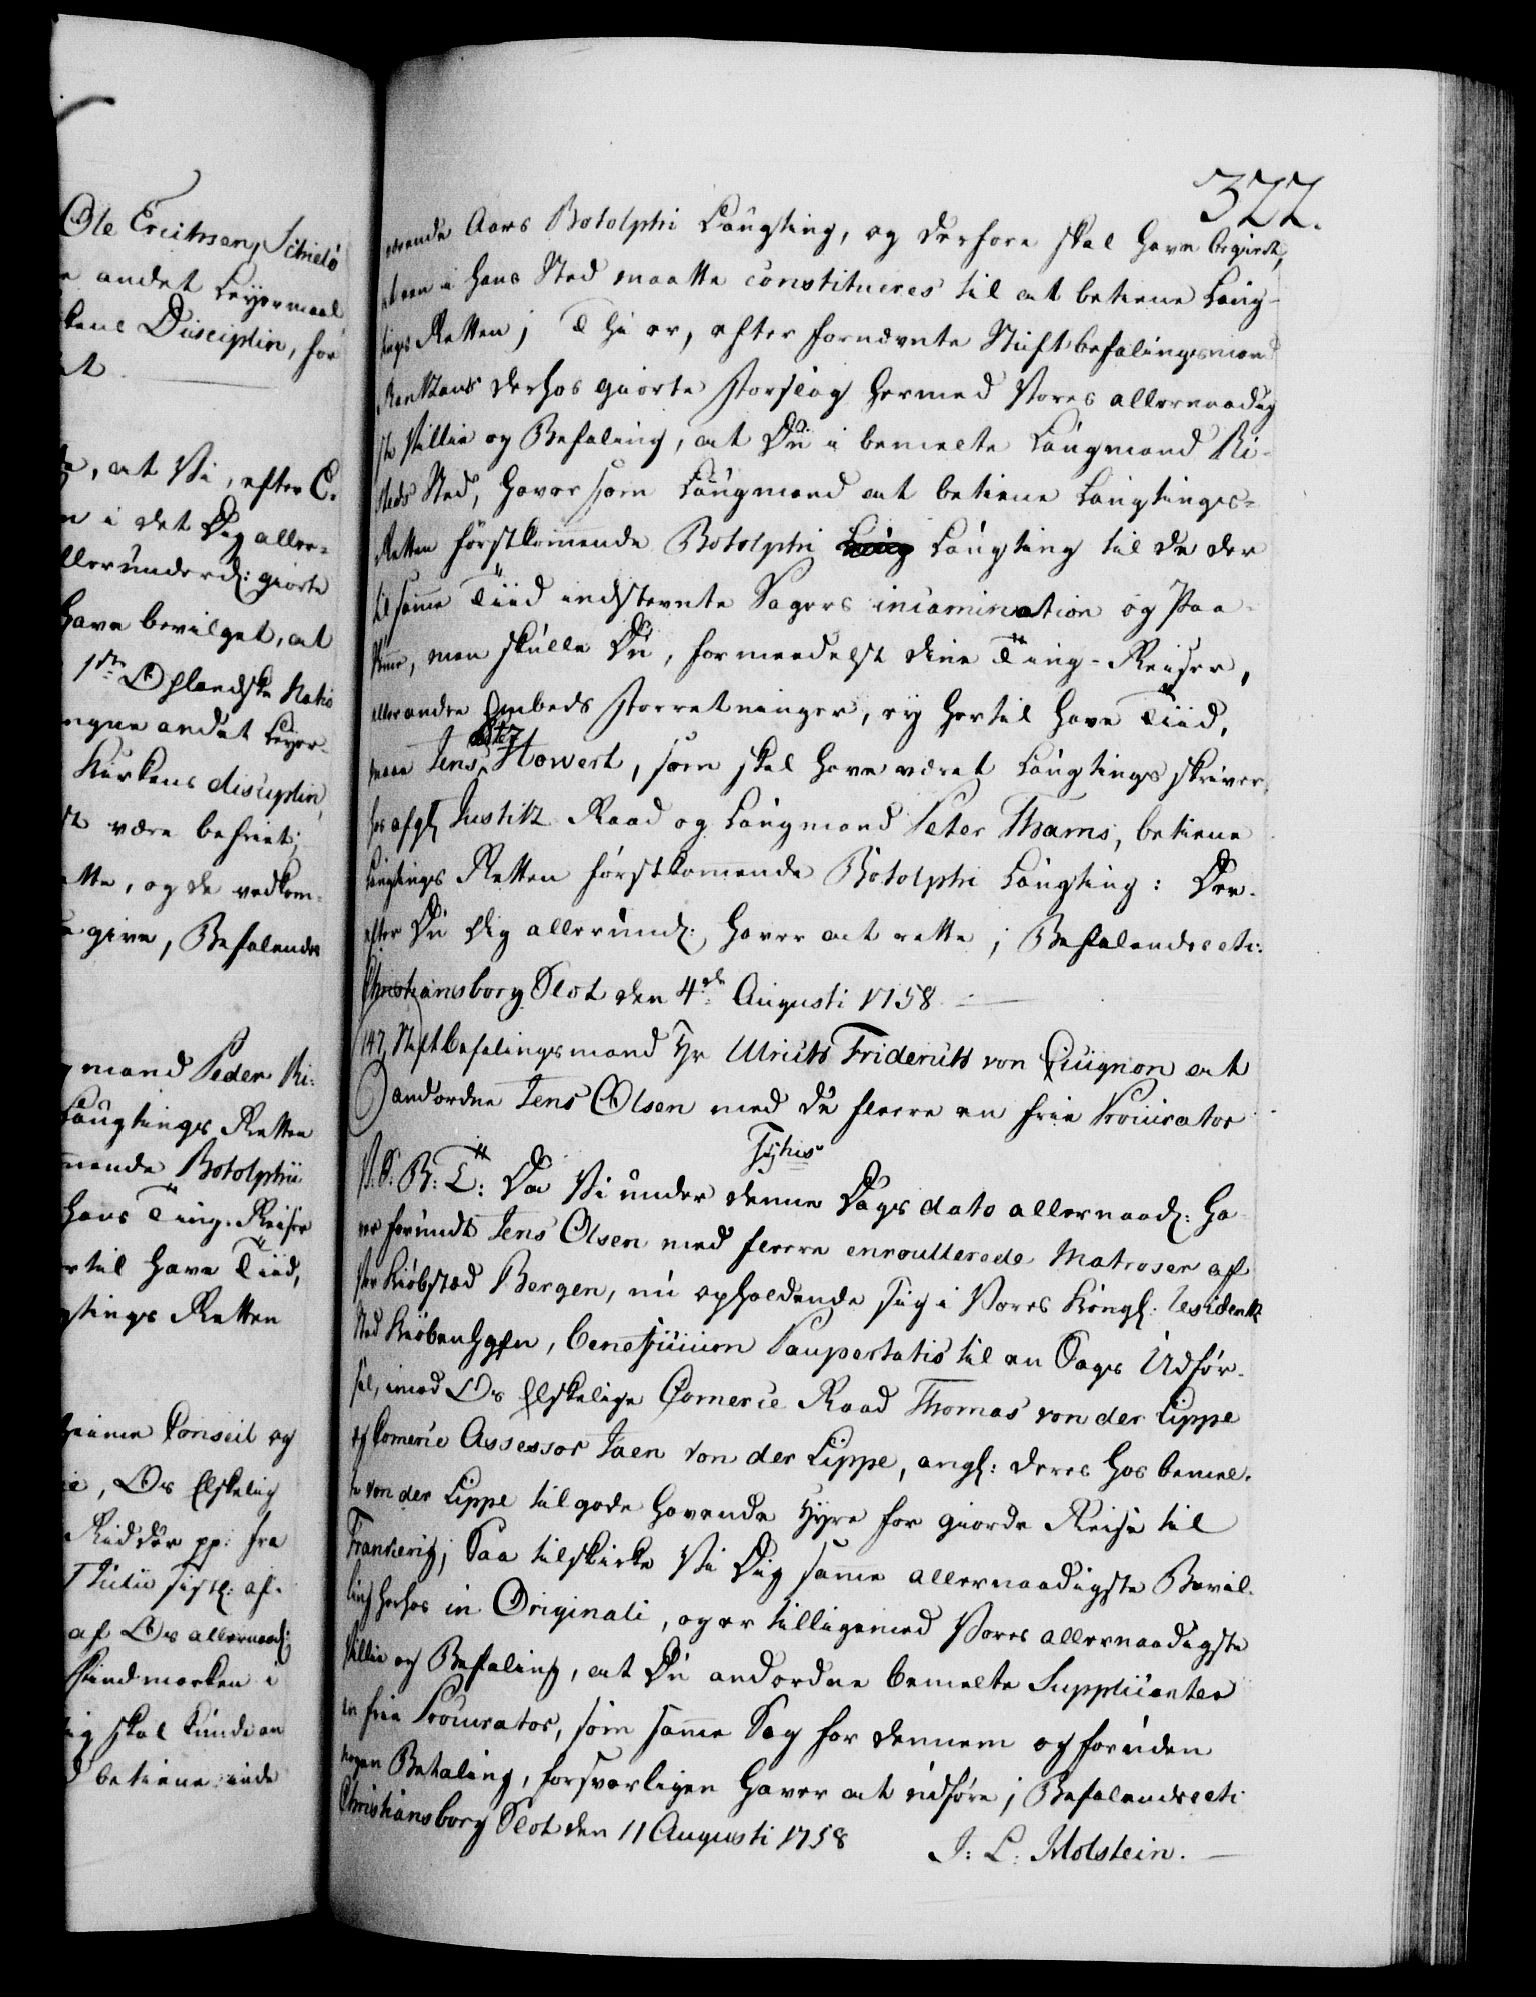 322.
Ole Erichsen, Schielö
andet Leyermaal
kens Disciplin, for
at
at Vi, efter C.
i det Dig aller-
allerunderd: giorte
have bevilget, at
1ste Oplandske Natio
andet Leyer-
Kirkens disciplin
være befriet;
og de vedkom-
give, Befalendes
mand Peder Ri:
Laugtings Retten
Botolphi
hans Ting-Reiser
hertil have Tiid,
Laugtings Retten
Conseil og
Os Elskelig
Ridder pp: fra
Julii sistl: af-
af Os allernaad:
Findmarken i
skal kunde an
betiene inde
værende Aars Botolphi Laugting, og derfore skal have begiert,
at een i hans Sted maatte constitueres til at betiene Laug-
tings Retten; Thi er, efter fornævnte Stiftbefalingsmand
Rentzaus derhos giorte Forslag hermed Vores allernaadig
ste Villie og Befaling, at Du i bemelte Laugmand Ri-
steds Sted, haver som Laugmand at betiene Laugtings-
Retten förstkommende Botolphi Laug Laugting til de der
til samme Tiid indstevnte Sagers incamination og Paa-
kiende, men skulle Du, formeedelst dine Ting-Reiser,
eller andre Embeds Forretninger, ey hertil have Tiid,
maae Jens Howert, som skal have været Laugtings skriver
hos afgl Justitz Raad og Laugmand Peter Thams, betiene
Laugtings Retten förstkommende Botolphi Laugting: Der-
efter Du Dig allerund: haver at rette; Befalendes etc:
Christiansborg Slot den 4de Augusti 1758.
147. Stiftbefalingsmand Hr Ulrich Friderich von Cicignon at
andordne Jens Olsen med de fleere en frie Procurator
V. S. B: T: Da Vi under denne Dags dato allernaad: ha-
ver forundt Jens Olsen med fleere enroullerede Matroser af
vor Kiöbstæd Bergen, nu opholdende sig i Vores Kongl: Residentz
Stad Kiöbenhafn, beneficium Paupertatis til en Sags Udför-
sel, imod Os Elskelige Comerce Raad Thomas von der Lippe
og Comerce Assessor Jaen von der Lippe, angl: deres hos bemel-
te von der Lippe tilgode havende Hyre for giorde Reise til
Frankerig; Saa tilskikke Vi Dig samme allernaadigste Bevil-
ling herhos in Originali, og er tilligemed Vores allernaadigste
Villie og Befaling, at Du andordne bemelte Supplicanter
en frie Procurator, som samme Sag for dennem og foruden
nogen Betaling, forsvarligen haver at udföre; Befalendes etc:
Christiansborg Slot den 11 Augusti 1758
J: L: Holstein.